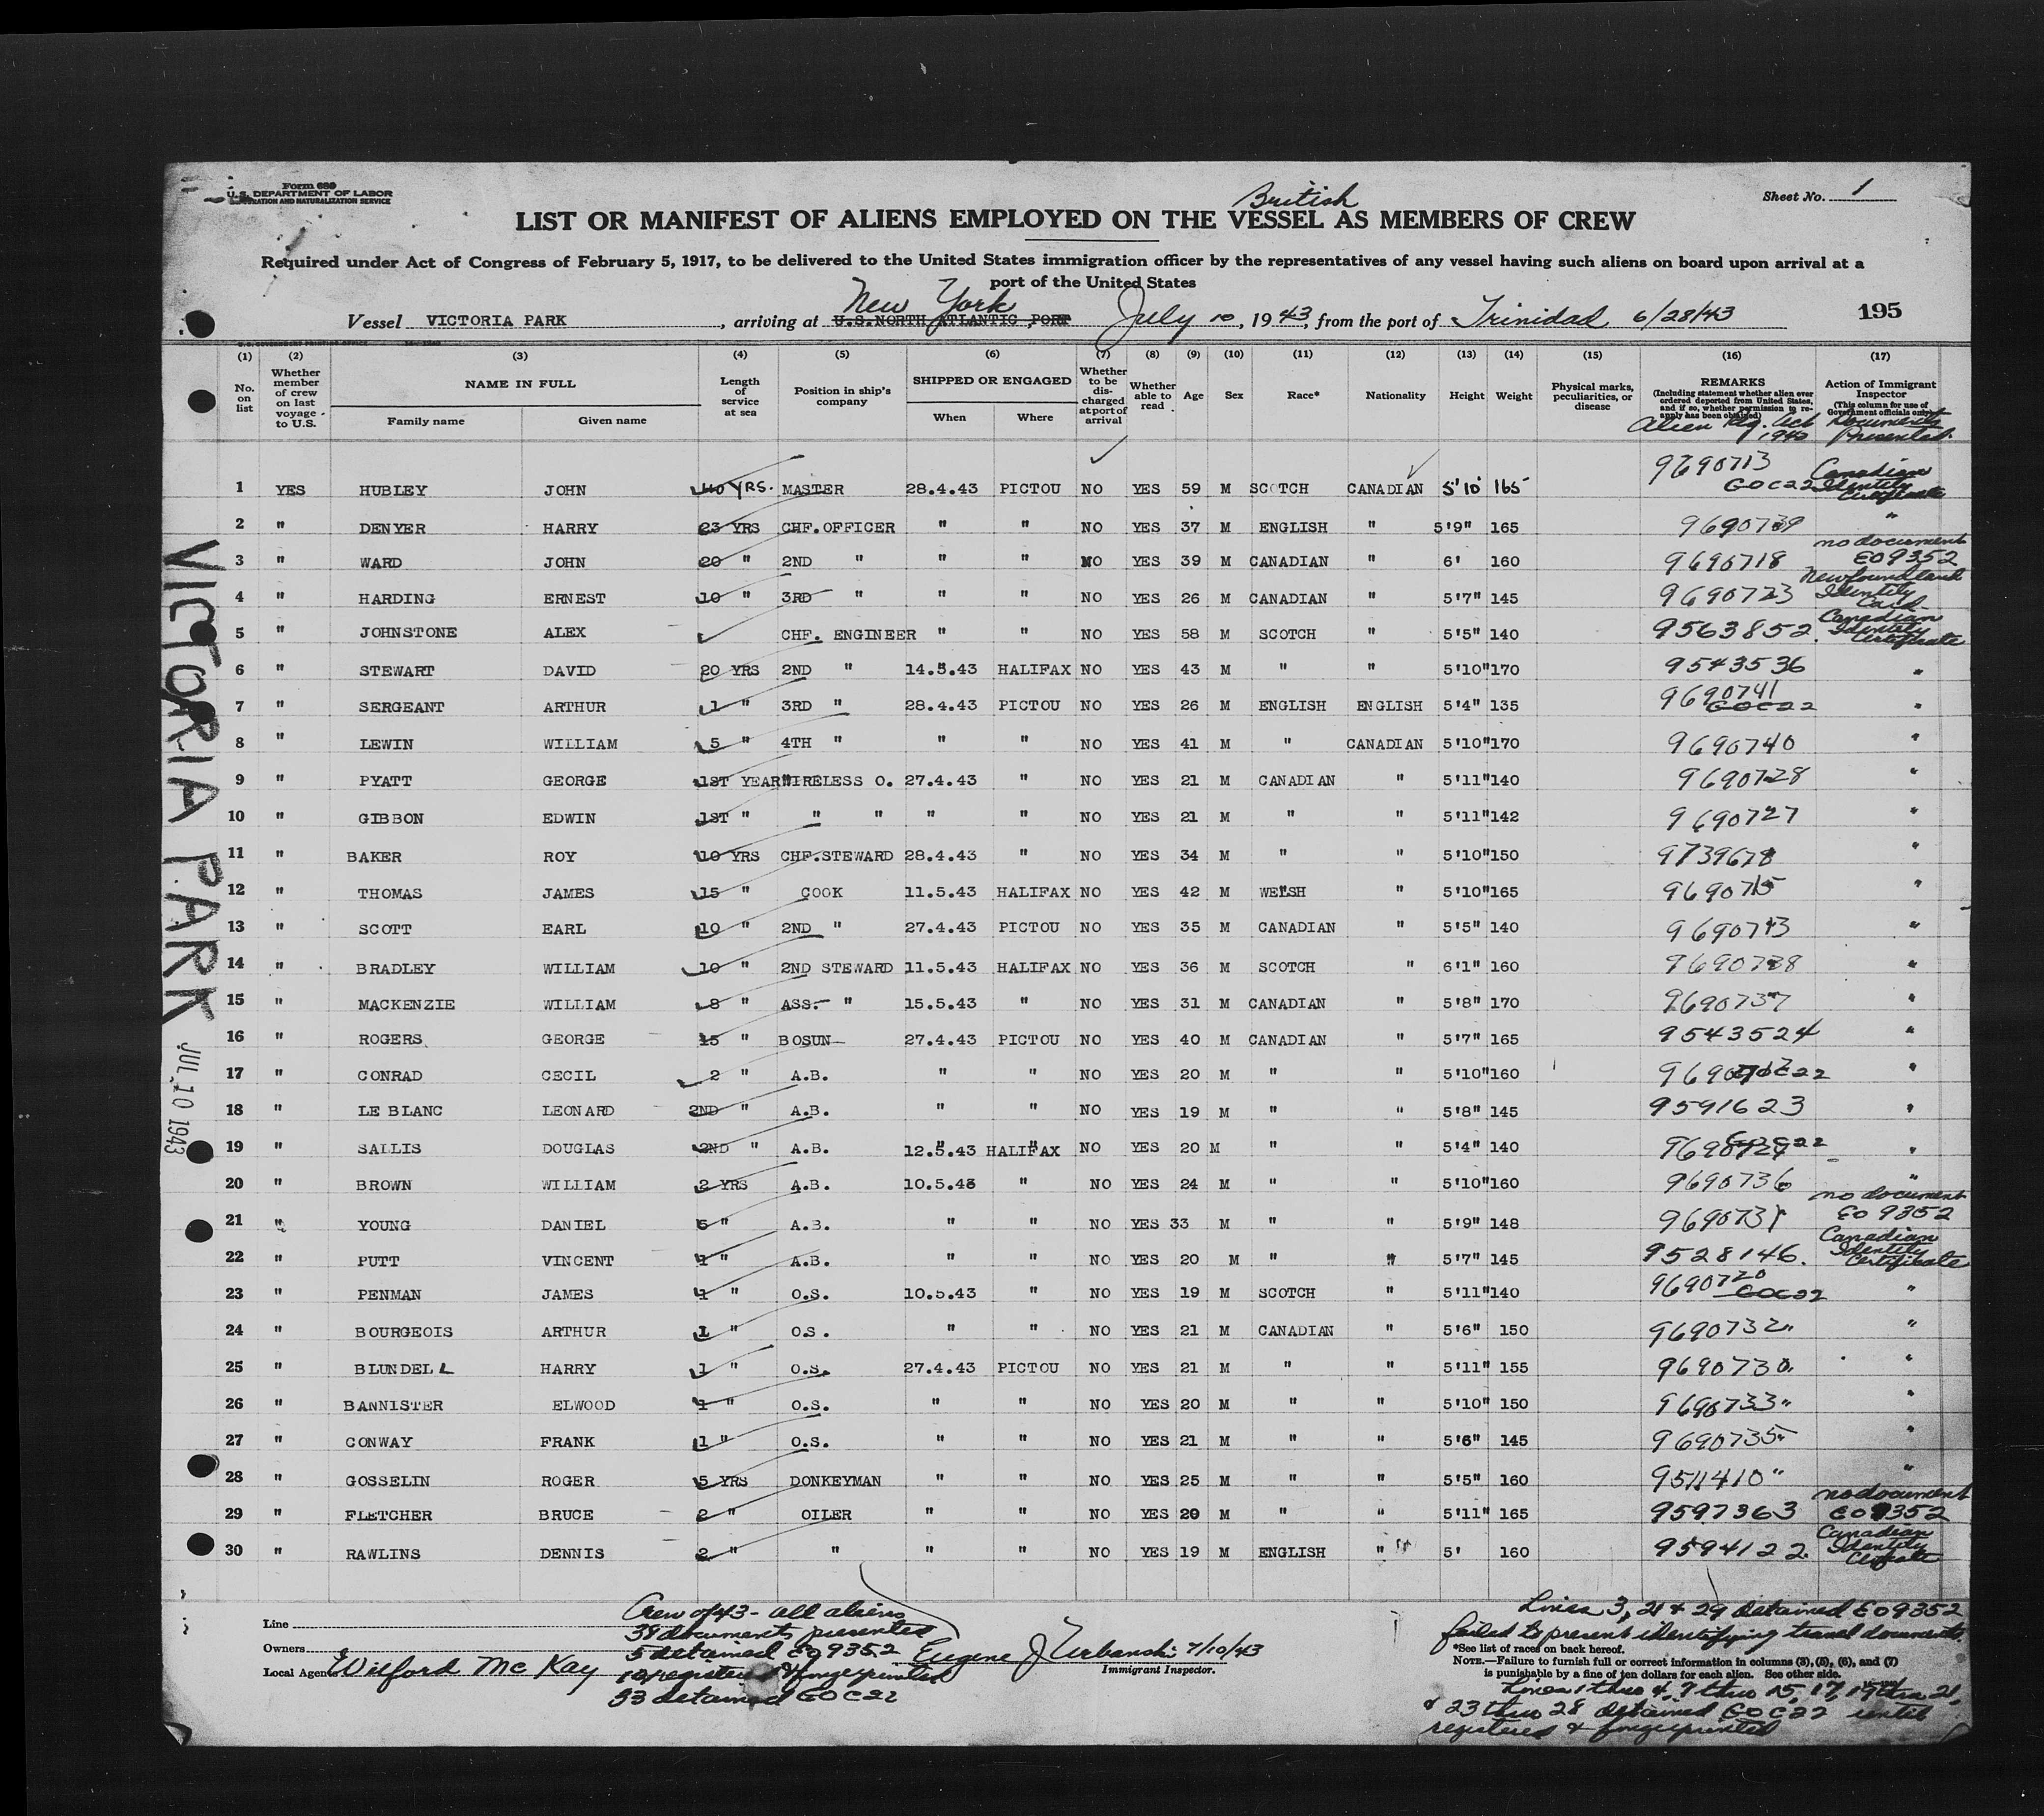 Form 680
U.S. DEPARTMENT OF LABOR
IMMIGRATION AND NATURALIZATION SERVICE
Sheet No. 1
British
LIST OR MANIFEST OF ALIENS EMPLOYED ON THE VESSEL AS MEMBERS OF CREW
Required under Act of Congress of February 5, 1917, to be delivered to the United States immigration officer by the representatives of any vessel having such aliens on board upon arrival at a
port of the United States
Vessel VICTORIA PARK, arriving at U.S.NORTH ATLANTIC PORT New York July 10, 1943, from the port of Trinidad 6/28/43 195
(1) (2) (3) (4) (5) (6) (7) (8) (9) (10) (11) (12) (13) (14) (15) (16) (17)
No. on list
Whether member of crew on last voyage to U.S.
NAME IN FULL
Family name Given name
Length of service at sea
Position in ship's company
SHIPPED OR ENGAGED
When Where
Whether to be discharged at port of arrival
Whether able to read
Age Sex Race* Nationality Height Weight
Physical marks, peculiarities, or disease
REMARKS
(Including statement whether alien ever ordered deported from United States, and if so, whether permission to reapply has been obtained)
Alien Reg. Act 1940
Action of Immigrant Inspector
(This column for use of Government officials only)
Documents Presented
1 YES HUBLEY JOHN 40 YRS. MASTER 28.4.43 PICTOU NO YES 59 M SCOTCH CANADIAN 5'10 165 9690713 GOC22 Canadian Identity Certificate
2 " DENYER HARRY 23 YRS CHF.OFFICER " " NO YES 37 M ENGLISH " 5'9" 165 9690739 "
3 " WARD JOHN 20 " 2ND " " " NO YES 39 M CANADIAN " 6' 160 9690718 no document EO 9352
4 " HARDING ERNEST 10 " 3RD " " " NO YES 26 M CANADIAN " 5'7" 145 9690723 Newfoundland Identity Card
5 " JOHNSTONE ALEX CHF. ENGINEER " " NO YES 58 M SCOTCH " 5'5" 140 9563852 Canadian Identity Certificate
6 " STEWART DAVID 20 YRS 2ND " 14.5.43 HALIFAX NO YES 43 M " " 5'10" 170 9543536 "
7 " SERGEANT ARTHUR 1 " 3RD " 28.4.43 PICTOU NO YES 26 M ENGLISH ENGLISH 5'4" 135 9690741 GOC22 "
8 " LEWIN WILLIAM 5 " 4TH " " " NO YES 41 M " CANADIAN 5'10" 170 9690740 "
9 " PYATT GEORGE 1ST YEAR WIRELESS O. 27.4.43 " NO YES 21 M CANADIAN " 5'11" 140 9690728 "
10 " GIBBON EDWIN 1ST " " " " " NO YES 21 M " " 5'11" 142 9690727 "
11 " BAKER ROY 10 YRS CHF.STEWARD 28.4.43 " NO YES 34 M " " 5'10" 150 9739678 "
12 " THOMAS JAMES 15 " COOK 11.5.43 HALIFAX NO YES 42 M WELSH " 5'10" 165 9690715 "
13 " SCOTT EARL 10 " 2ND " 27.4.43 PICTOU NO YES 35 M CANADIAN " 5'5" 140 "
14 " BRADLEY WILLIAM 10 " 2ND STEWARD 11.5.43 HALIFAX NO YES 36 M SCOTCH " 6'1" 160 "
15 " MACKENZIE WILLIAM 8 " ASS. " 15.5.43 " NO YES 31 M CANADIAN " 5'8" 170 9690737 "
16 " ROGERS GEORGE 15 " BOSUN 27.4.43 PICTOU NO YES 40 M CANADIAN " 5'7" 165 9543524 "
17 " CONRAD CECIL 2 " A.B. " " NO YES 20 M " " 5'10" 160 "
18 " LE BLANC LEONARD 2ND " A.B. " " NO YES 19 M " " 5'8" 145 9591623 "
19 " SALLIS DOUGLAS 2ND " A.B. 12.5.43 HALIFAX NO YES 20 M " " 5'4" 140 "
20 " BROWN WILLIAM 2 YRS A.B. 10.5.43 " NO YES 24 M " " 5'10" 160 9690736 "
21 " YOUNG DANIEL 5 " A.B. " " NO YES 33 M " " 5'9" 148 no document EO 9352
22 " PUTT VINCENT 1 " A.B. " " NO YES 20 M " " 5'7" 145 9528146. Canadian Identity Certificate
23 " PENMAN JAMES 1 " O.S. 10.5.43 " NO YES 19 M SCOTCH " 5'11" 140 9690720 GOC22 "
24 " BOURGEOIS ARTHUR 1 " O.S. " " NO YES 21 M CANADIAN " 5'6" 150 9690732 " "
25 " BLUNDELL HARRY 1 " O.S. 27.4.43 PICTOU NO YES 21 M " " 5'11" 155 9690730 "
26 " BANNISTER ELWOOD 1 " O.S. " " NO YES 20 M " " 5'10" 150 9690733 " "
27 " CONWAY FRANK 1 " O.S. " " NO YES 21 M " " 5'6" 145 9690735 "
28 " GOSSELIN ROGER 5 YRS DONKEYMAN " " NO YES 25 M " " 5'5" 160 9511410 " "
29 " FLETCHER BRUCE 2 " OILER " " NO YES 20 M " " 5'11" 165 9597363 no document EO 9352
30 " RAWLINS DENNIS 2 " " " " NO YES 19 M ENGLISH " 5' 160 9594122. Canadian Identity Certificate
VICTORIA PARK JUL 10 1943
Line
Owners
Local Agents Wilford McKay
Crew of 43 - all aliens
38 documents presented
5 detained EO 9352
registered & fingerprinted
33 detained GOC22
Eugene J Urbanski 7/10/43
Immigrant Inspector.
Lines 3, 21 & 29 detained EO 9352
failed to present identifying travel documents.
*See list of races on back hereof.
NOTE.—Failure to furnish full or correct information in columns (3), (5), (6), and (7)
is punishable by a fine of ten dollars for each alien. See other side.
Lines 1 thru 4, 7 thru 15, 17, 19 thru 21,
& 23 thru 28 detained GOC22 until
registered & fingerprinted